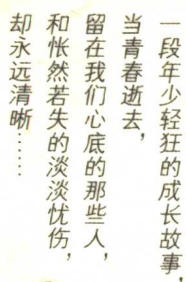 一段年少轻狂的成长故事，
当青春逝去，
留在我们心底的那些人，
和怅然若失的淡淡忧伤，
却永远清晰……